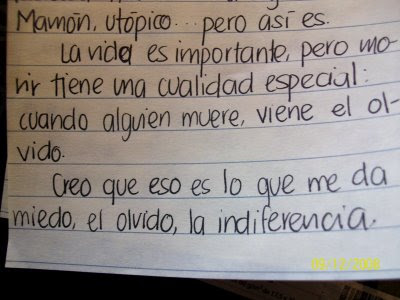 Mamón, utópico... pero así es.
La vida es importante, pero mo-
rir tiene una cualidad especial:
cuando alguien muere, viene el ol-
vido.
Creo que eso es lo que me da
miedo, el olvido, la indiferencia.
09/12/2008